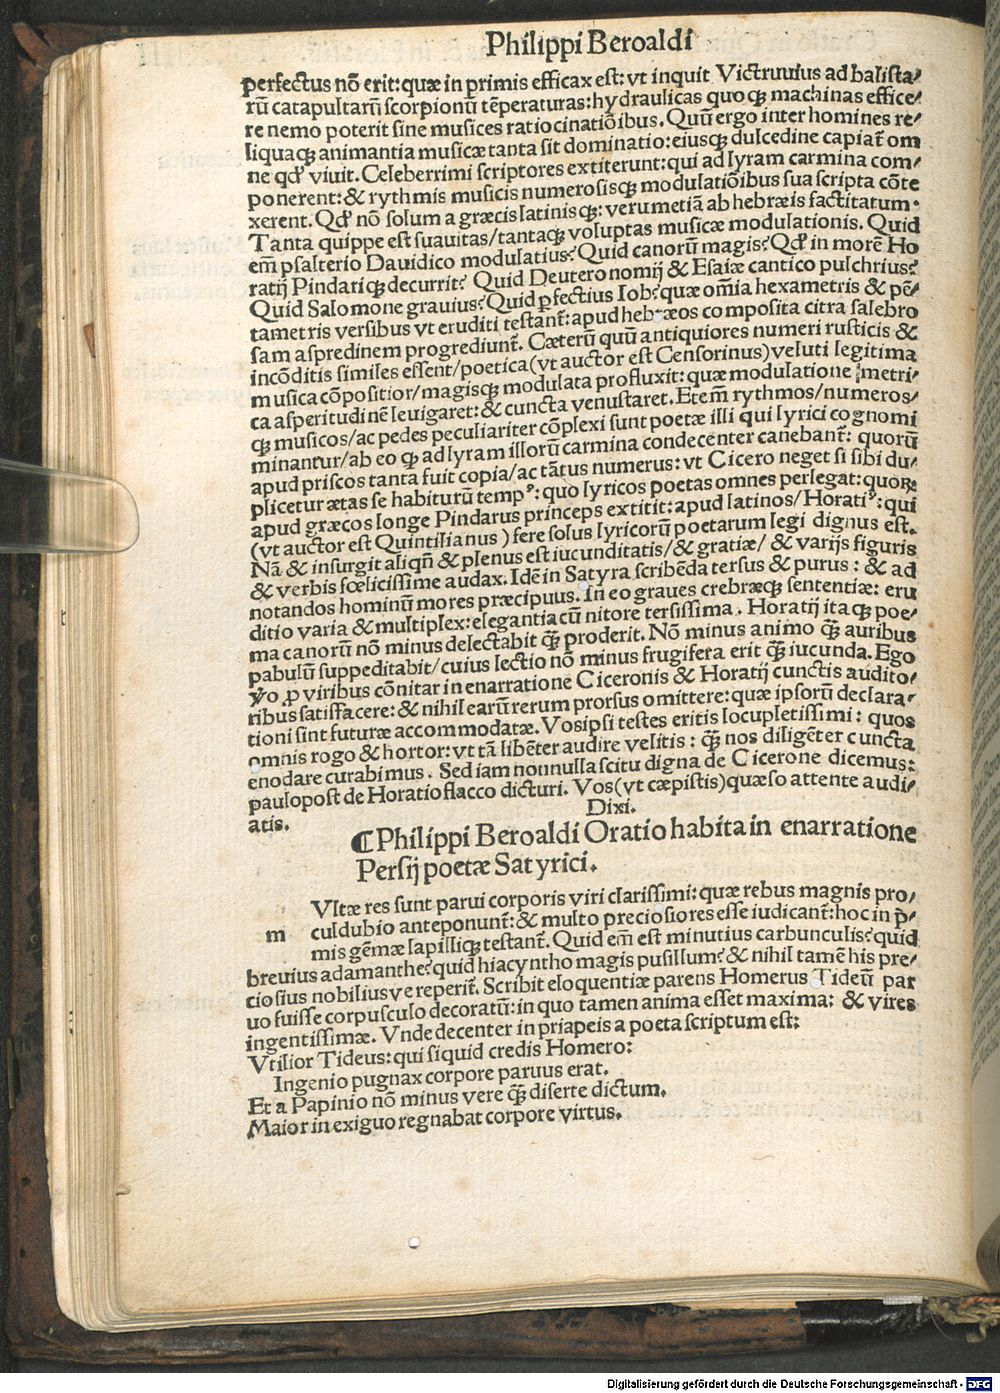 Philippi Beroaldi
perfectus nõ erit: quæ in primis efficax est: vt inquit Victruuius ad balista/
rũ catapultarũ scorpionũ tẽperaturas: hydraulicas quoqꝫ machinas effice/
re nemo poterit sine musices ratiocinatiõibus. Quũ ergo inter homines re/
liquaqꝫ animantia musicæ tanta sit dominatio: eiusqꝫ dulcedine capiat̃ om
ne qđ viuit. Celeberrimi scriptores extiterunt: qui ad lyram carmina com/
ponerent: & rythmis musicis numerosisqꝫ modulatiõibus sua scripta cõte
xerent. Qđ nõ solum a græcis latinisqꝫ: verumetiã ab hebræis factitatum.
Tanta quippe est suauitas/tantaqꝫ voluptas musicæ modulationis. Quid
em̃ psalterio Dauidico modulatius? Quid canorũ magis? Qđ in morẽ Ho
ratij Pindariqꝫ decurrit? Quid Deuteronomij & Esaiæ cantico pulchrius?
Quid Salomone grauius? Quid ꝑfectius Iob? quæ om̃ia hexametris & pẽ/
tametris versibus vt eruditi testant̃: apud hebræos composita citra salebro
sam aspredinem progrediunt̃. Cæterũ quũ antiquiores numeri rusticis &
incõditis similes essent/poetica (vt auctor est Censorinus) veluti legitima
musica cõpositior/magisqꝫ modulata profluxit: quæ modulatione metri/
ca asperitudinẽ leuigaret: & cuncta venustaret. Etem̃ rythmos/numeros/
qꝫ musicos/ac pedes peculiariter cõplexi sunt poetæ illi qui lyrici cognomi
minantur/ab eo ꝙ ad lyram illorũ carmina condecenter canebant̃: quorũ
apud priscos tanta fuit copia/ac tãtus numerus: vt Cicero neget si sibi du/
plicetur ætas se habiturũ tempꝰ: quo lyricos poetas omnes perlegat: quoꝝ
apud græcos longe Pindarus princeps extitit: apud latinos/Horatiꝰ: qui
(vt auctor est Quintilianus) fere solus lyricorũ poetarum legi dignus est.
Nã & insurgit aliqñ & plenus est iucunditatis/& gratiæ/ & varijs figuris
& verbis fœlicissime audax. Idẽ in Satyra scribẽda tersus & purus: & ad
notandos hominũ mores præcipuus. In eo graues crebræqꝫ sententiæ: eru
ditio varia & multiplex: elegantia cũ nitore tersissima. Horatij itaqꝫ poe/
ma canorũ nõ minus delectabit ꝙ̃ proderit. Nõ minus animo ꝙ̃ auribus
pabulũ suppeditabit/cuius lectio nõ minus frugifera erit ꝙ̃ iucunda. Ego
ṽo ꝓ viribus cõnitar in enarratione Ciceronis & Horatij cunctis audito/
ribus satisfacere: & nihil earũ rerum prorsus omittere: quæ ipsorũ declara/
tioni sint futuræ accommodatæ. Vosipsi testes eritis locupletissimi: quos
omnis rogo & hortor: vt tã libẽter audire velitis: ꝙ̃ nos diligẽter cuncta
enodare curabimus. Sed iam nonnulla scitu digna de Cicerone dicemus:
paulopost de Horatio flacco dicturi. Vos (vt cæpistis) quæso attente audi/
atis.
Dixi.
¶ Philippi Beroaldi Oratio habita in enarratione
Persij poetæ Satyrici.
m
Vltæ res sunt parui corporis viri clarissimi: quæ rebus magnis pro/
culdubio anteponunt̃: & multo preciosiores esse iudicant̃: hoc in p̃/
mis gẽmæ lapilliqꝫ testant̃. Quid em̃ est minutius carbunculis? quid
breuius adamanthe? quid hiacyntho magis pusillum? & nihil tamẽ his pre/
ciosius nobiliusve reperit̃. Scribit eloquentiæ parens Homerus Tideũ par
uo fuisse corpusculo decoratũ: in quo tamen anima esset maxima: & vires
ingentissimæ. Vnde decenter in priapeis a poeta scriptum est:
Vtilior Tideus: qui siquid credis Homero:
Ingenio pugnax corpore paruus erat.
Et a Papinio nõ minus vere ꝙ̃ diserte dictum.
Maior in exiguo regnabat corpore virtus.
Digitalisierung gefördert durch die Deutsche Forschungsgemeinschaft - DFG